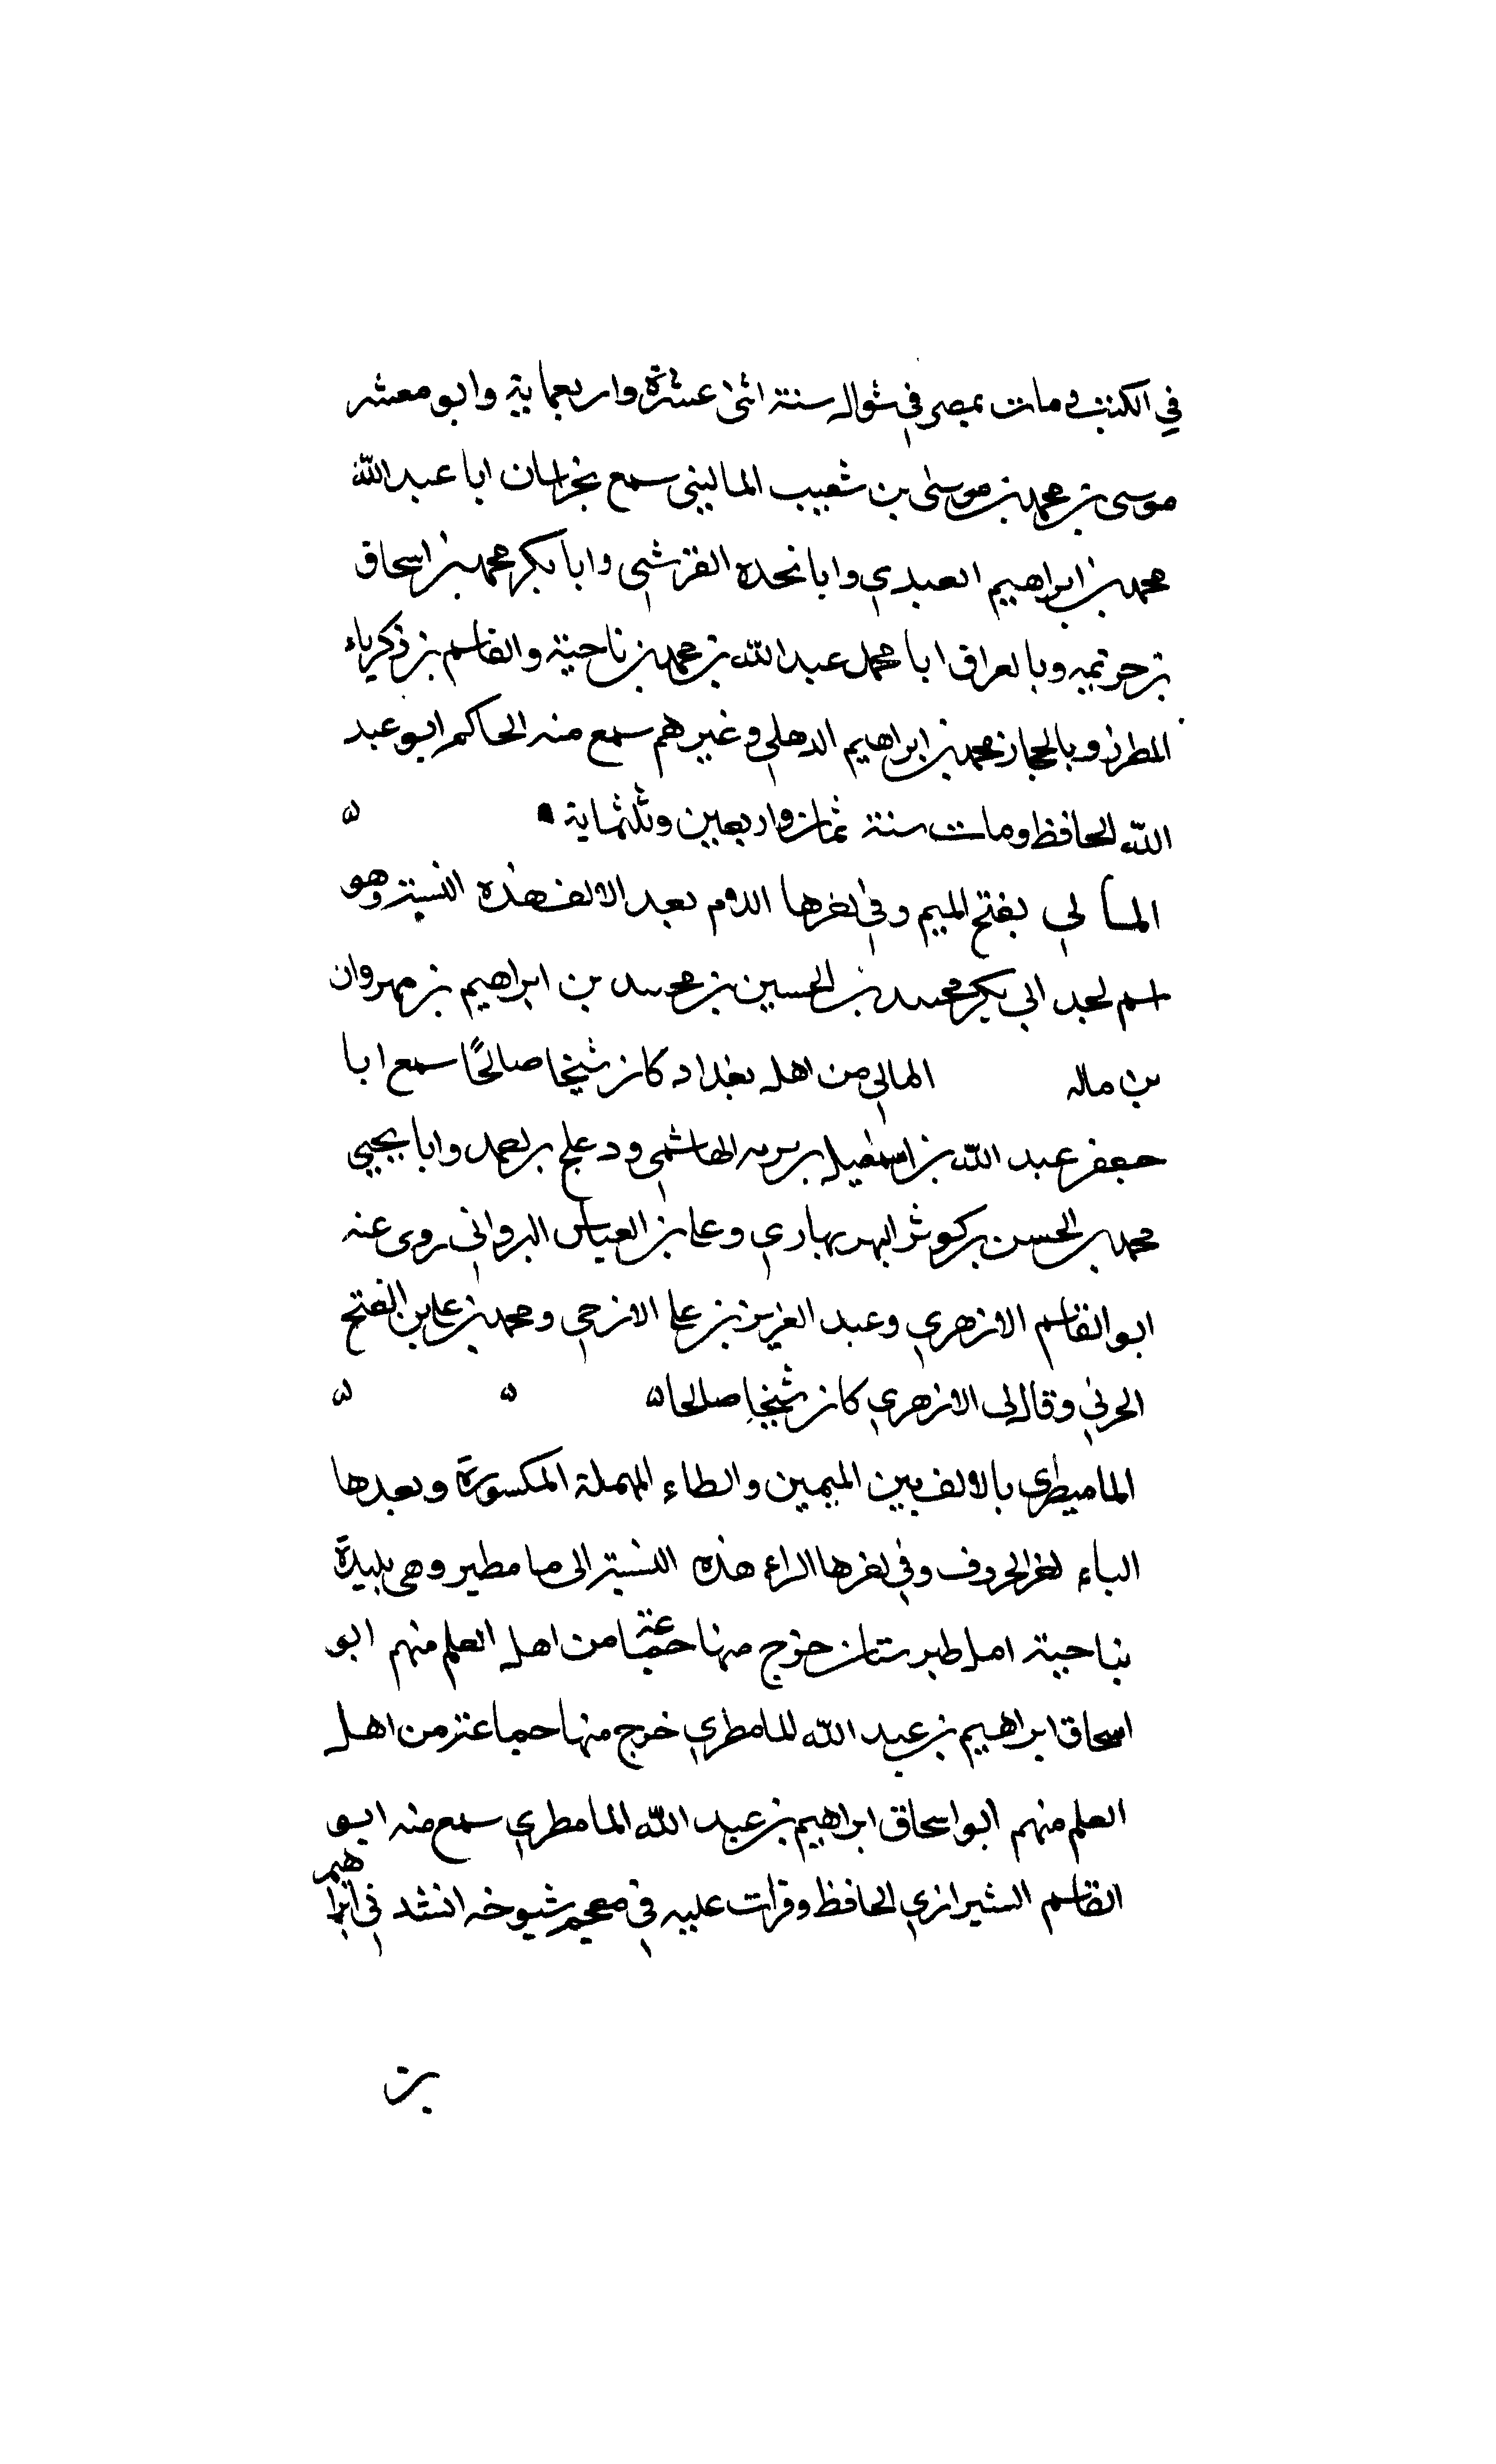 في الكتب مات بمصر في شوال سنة اثنى عشرة واربعماية وابو معشر
موسى بن محمد بن موسى بن شعيب الماليني سمع بخراسان ابا عبد الله
محمد بن ابراهيم العبدي وابا نحده القرشي وابا بكر محمد بن اسحاق
بن حزيمه وبالعراق ابا محمد عبد الله بن محمد بن ناحية والقاسم بن زكرياء
المطرز وبالحجاز محمد بن ابراهيم الدهلي وغيرهم سمع منه الحاكم ابو عبد
الله الحافظ ومات سنة ثمان واربعين وثلثماية ه
المالي بفتح الميم وفي اخرها اللام بعد الالف هذه النسبة وهو
اسم لجد ابي بكر محمد بن الحسين بن محمد بن ابراهيم بن مهروان
بن ماله المالي من اهل بغداد كان شيخا صالحًا سمع ابا
جعفر عبد الله بن اسمعيل بن بريه الهاشمي ودعلج بن احمد وابا يحيي
محمد بن الحسن بن كوثر البربهاري وعلي بن العباس البرداني روى عنه
ابو القاسم الازهري وعبد العزيز بن علي الازجي ومحمد بن علي بن الفتح
الحربي وقال لي الازهري كان شيخا صالحا ه ه ه
المامطيري بالالف بين الميمين والطاء المهملة المكسورة وبعدها
الياء اخر الحروف وفي اخرها الراء هذه النسبة الى مامطير وهى بليدة
بناحية امل طبرستان خرج منها جماعة من اهل العلم منهم ابو
اسحاق ابراهيم بن عبد الله المامطري خرج منها جماعة من اهل
العلم منهم ابو اسحاق ابراهيم بن عبد الله المامطري سمع منه ابو
القاسم الشيرازي الحافظ وقرات عليه في معجم شيوخه انشدني ابراهيم
بن